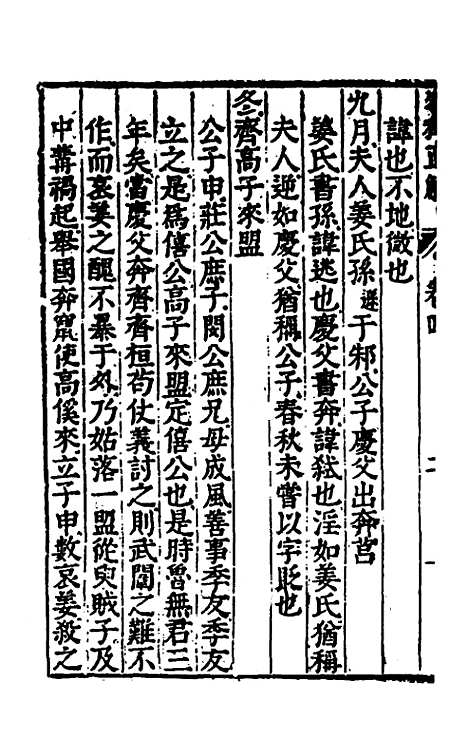 諱也不地微也
九月夫人姜氏孫遜于邾公子慶父出奔莒
姜氏書孫諱迯也慶父書奔諱弒也淫如姜氏猶稱
夫人逆如慶父猶稱公子春秋未嘗以字貶也
冬齊高子來盟
公子申莊公庶子閔公庶兄母成風善事季友季友
立之是爲僖公高子來盟定僖公也是時魯無君三
年矣當慶父奔齊齊桓茍仗義討之則武闈之難不
作而哀姜之醜不暴于外乃姑落一盟從臾賊子及
中冓禍起舉國奔竄使高傒來立子申數哀姜殺之